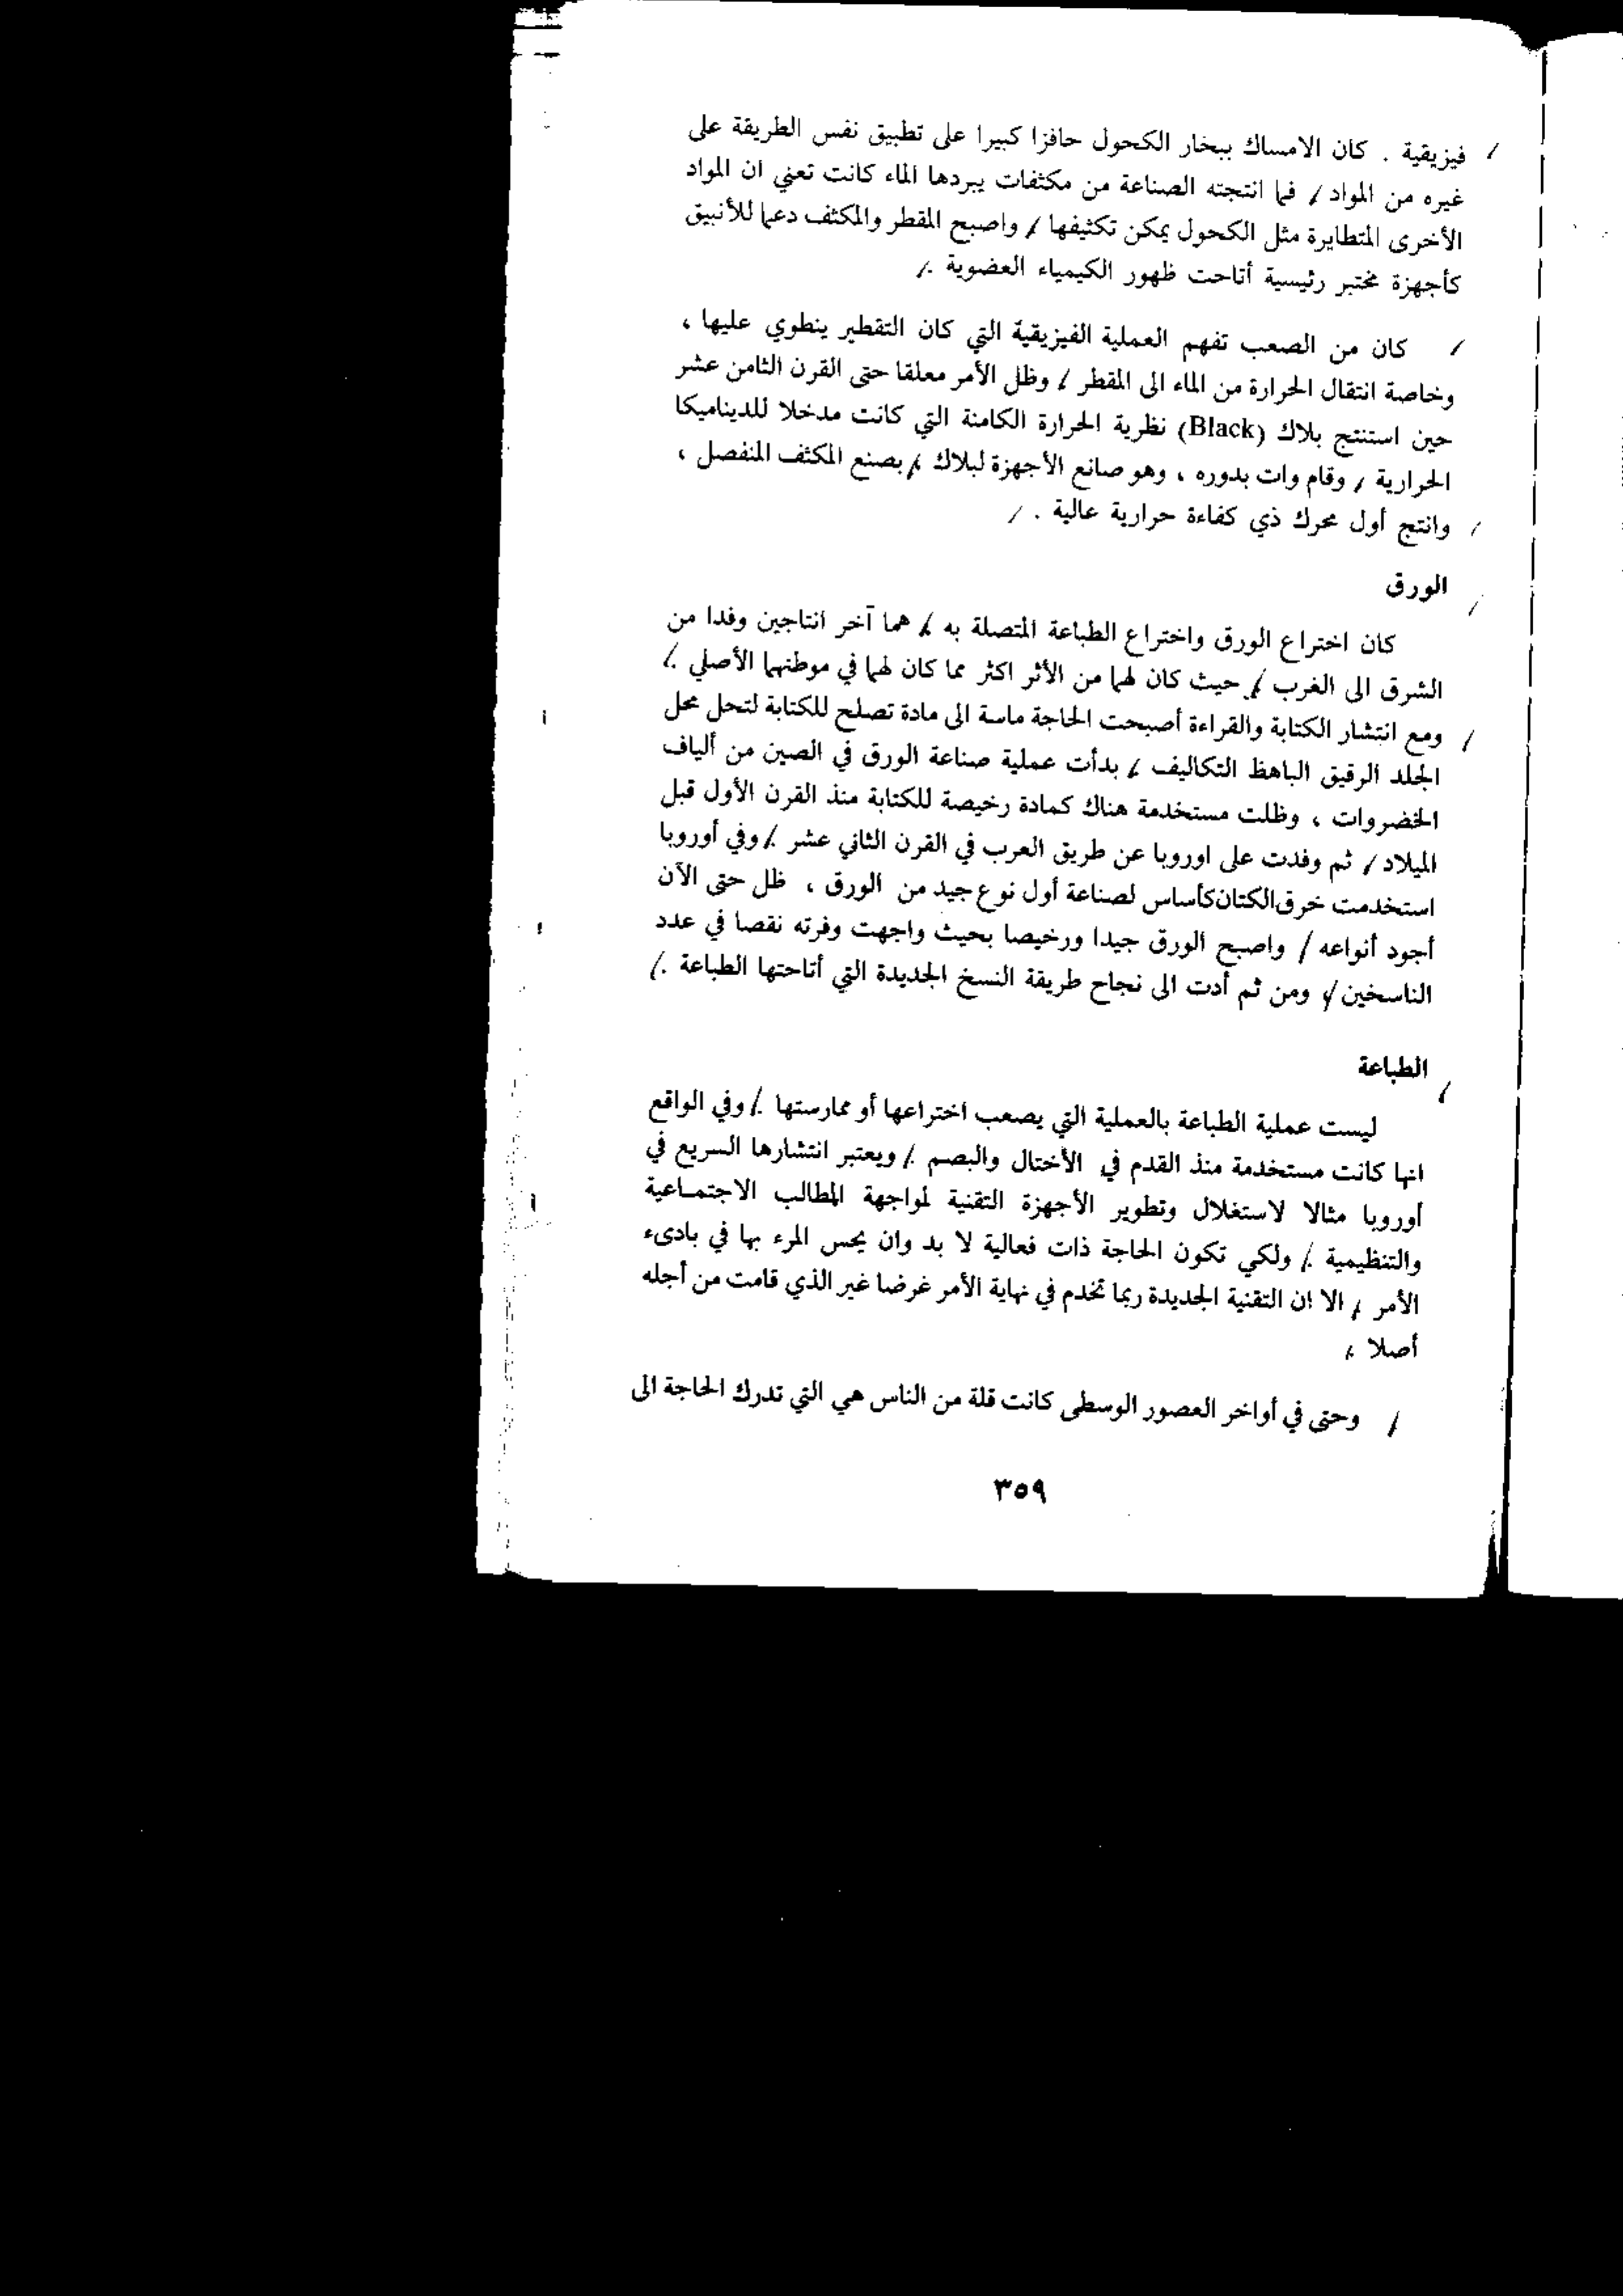 فيزيقية . كان الامساك ببخار الكحول حافزا كبيرا على تطبيق نفس الطريقة على
غيره من المواد ، فما انتجته الصناعة من مكثفات يبردها الماء كانت تعني ان المواد
الأخرى المتطايرة مثل الكحول يمكن تكثيفها ، واصبح المقطر والمكثف دعما للأنبيق
كأجهزة مختبر رئيسية أتاحت ظهور الكيمياء العضوية .
كان من الصعب تفهم العملية الفيزيقية التي كان التقطير ينطوي عليها ،
وخاصة انتقال الحرارة من الماء الى المقطر ، وظل الأمر معلقا حتى القرن الثامن عشر
حين استنتج بلاك (Black) نظرية الحرارة الكامنة التي كانت مدخلا للديناميكا
الحرارية ، وقام وات بدوره ، وهو صانع الأجهزة لبلاك ، بصنع المكثف المنفصل ،
وانتج أول محرك ذي كفاءة حرارية عالية .
الورق
كان اختراع الورق واختراع الطباعة المتصلة به ، هما آخر انتاجين وفدا من
الشرق الى الغرب ، حيث كان لهما من الأثر اكثر مما كان لهما في موطنهما الأصلي .
ومع انتشار الكتابة والقراءة أصبحت الحاجة ماسة الى مادة تصلح للكتابة لتحل محل
الجلد الرقيق الباهظ التكاليف ، بدأت عملية صناعة الورق في الصين من ألياف
الخضروات ، وظلت مستخدمة هناك كمادة رخيصة للكتابة منذ القرن الأول قبل
الميلاد ، ثم وفدت على اوروبا عن طريق العرب في القرن الثاني عشر . وفي أوروبا
استخدمت خرق الكتان كأساس لصناعة أول نوع جيد من الورق ، ظل حتى الآن
أجود أنواعه / واصبح الورق جيدا ورخيصا بحيث واجهت وفرته نقصا في عدد
الناسخين ، ومن ثم أدت الى نجاح طريقة النسخ الجديدة التي أتاحتها الطباعة .
الطباعة
ليست عملية الطباعة بالعملية التي يصعب اختراعها أو ممارستها . وفي الواقع
انها كانت مستخدمة منذ القدم في الأختال والبصم . ويعتبر انتشارها السريع في
أوروبا مثالا لاستغلال وتطوير الأجهزة التقنية لمواجهة المطالب الاجتماعية
والتنظيمية . ولكي تكون الحاجة ذات فعالية لا بد وان يحس المرء بها في بادىء
الأمر ، الا ان التقنية الجديدة ربما تخدم في نهاية الأمر غرضا غير الذي قامت من أجله
أصلا .
وحتى في أواخر العصور الوسطى كانت قلة من الناس هي التي تدرك الحاجة الى
٣٥٩